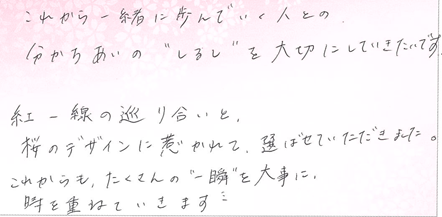 これから一緒に歩んでいく人との
分かちあいの"しるし"を大切にしていきたいです
紅一線の巡り合いと、
桜のデザインに惹かれて、選ばせていただきました。
これからも、たくさんの"一瞬"を大事に、
時を重ねていきます